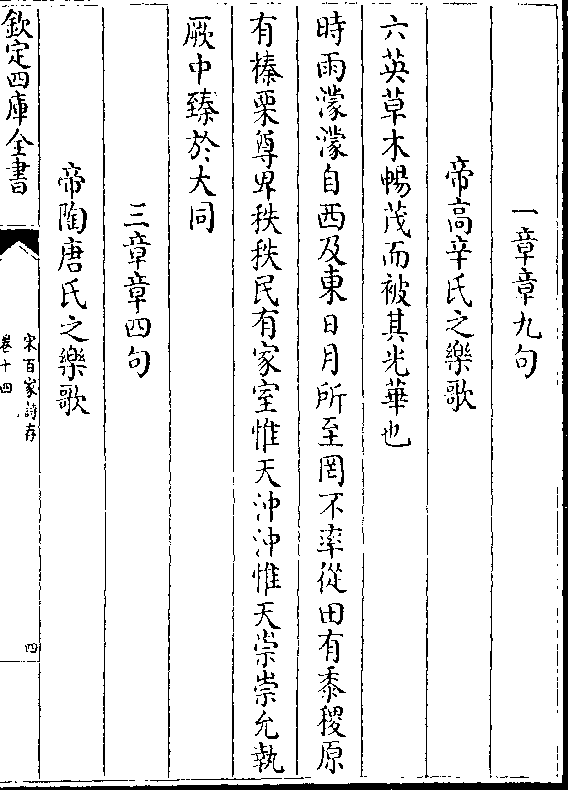 一章章九句
帝高辛氏之樂歌
六英草木暢茂而被其光華也
時雨濛濛自西及東日月所至罔不率從田有黍稷原
有榛栗尊卑秩秩民有家室惟天沖沖惟天崇崇允執
厥中臻於大同
三章章四句
帝陶唐氏之樂歌
欽定四庫全書
宋百家詩存
卷十四
四